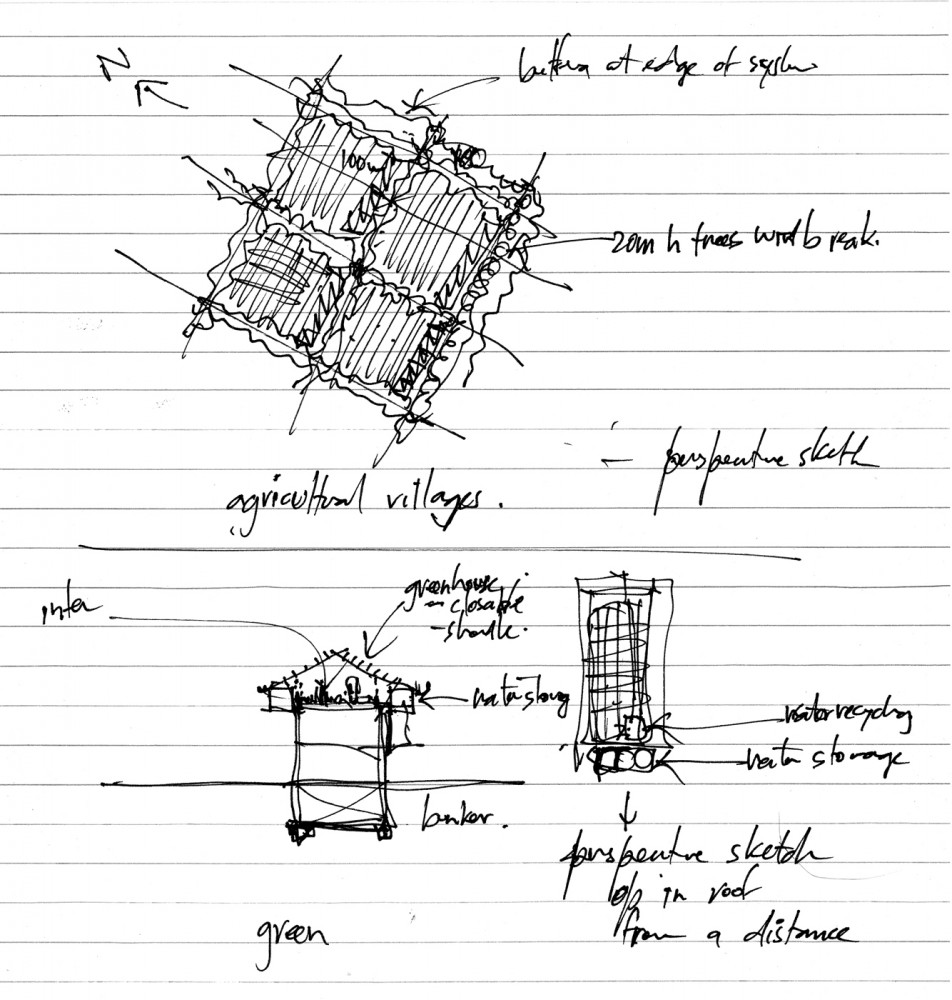 N
at edge of system
100m
20m h trees windbreak.
– perspective sketch
agricultural villages.
greenhouse
– closable
–
water storage
water recycling
water storage
bunker.
perspective sketch
in roof
from a distance
green